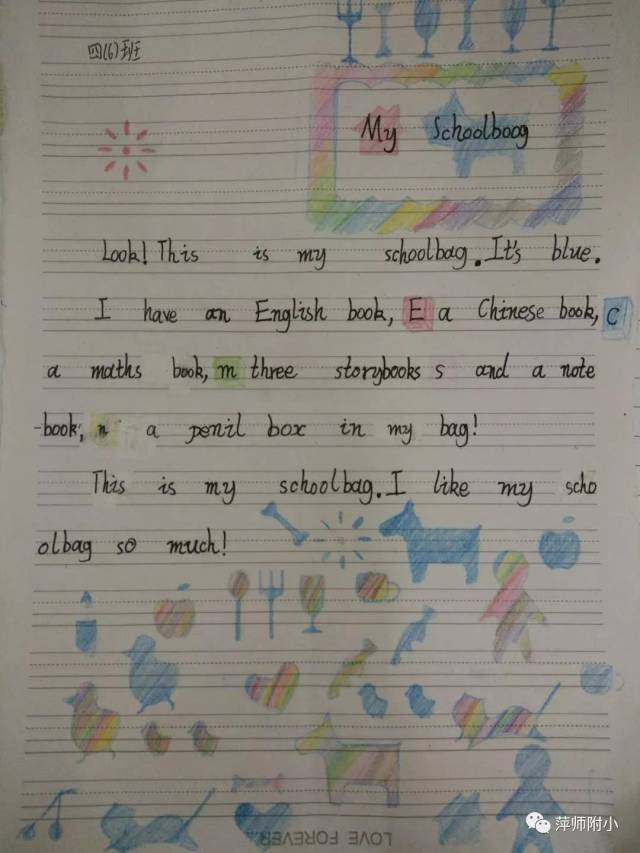 四(6)班
My Schoolboog
Look! This is my schoolbag. It's blue.
I have an English book, E a Chinese book, C
a maths book, m three storybooks s and a note
-book, n a penil box in my bag!
This is my schoolbag. I like my scho
olbag so much!
LOVE FOREVER...
萍师附小